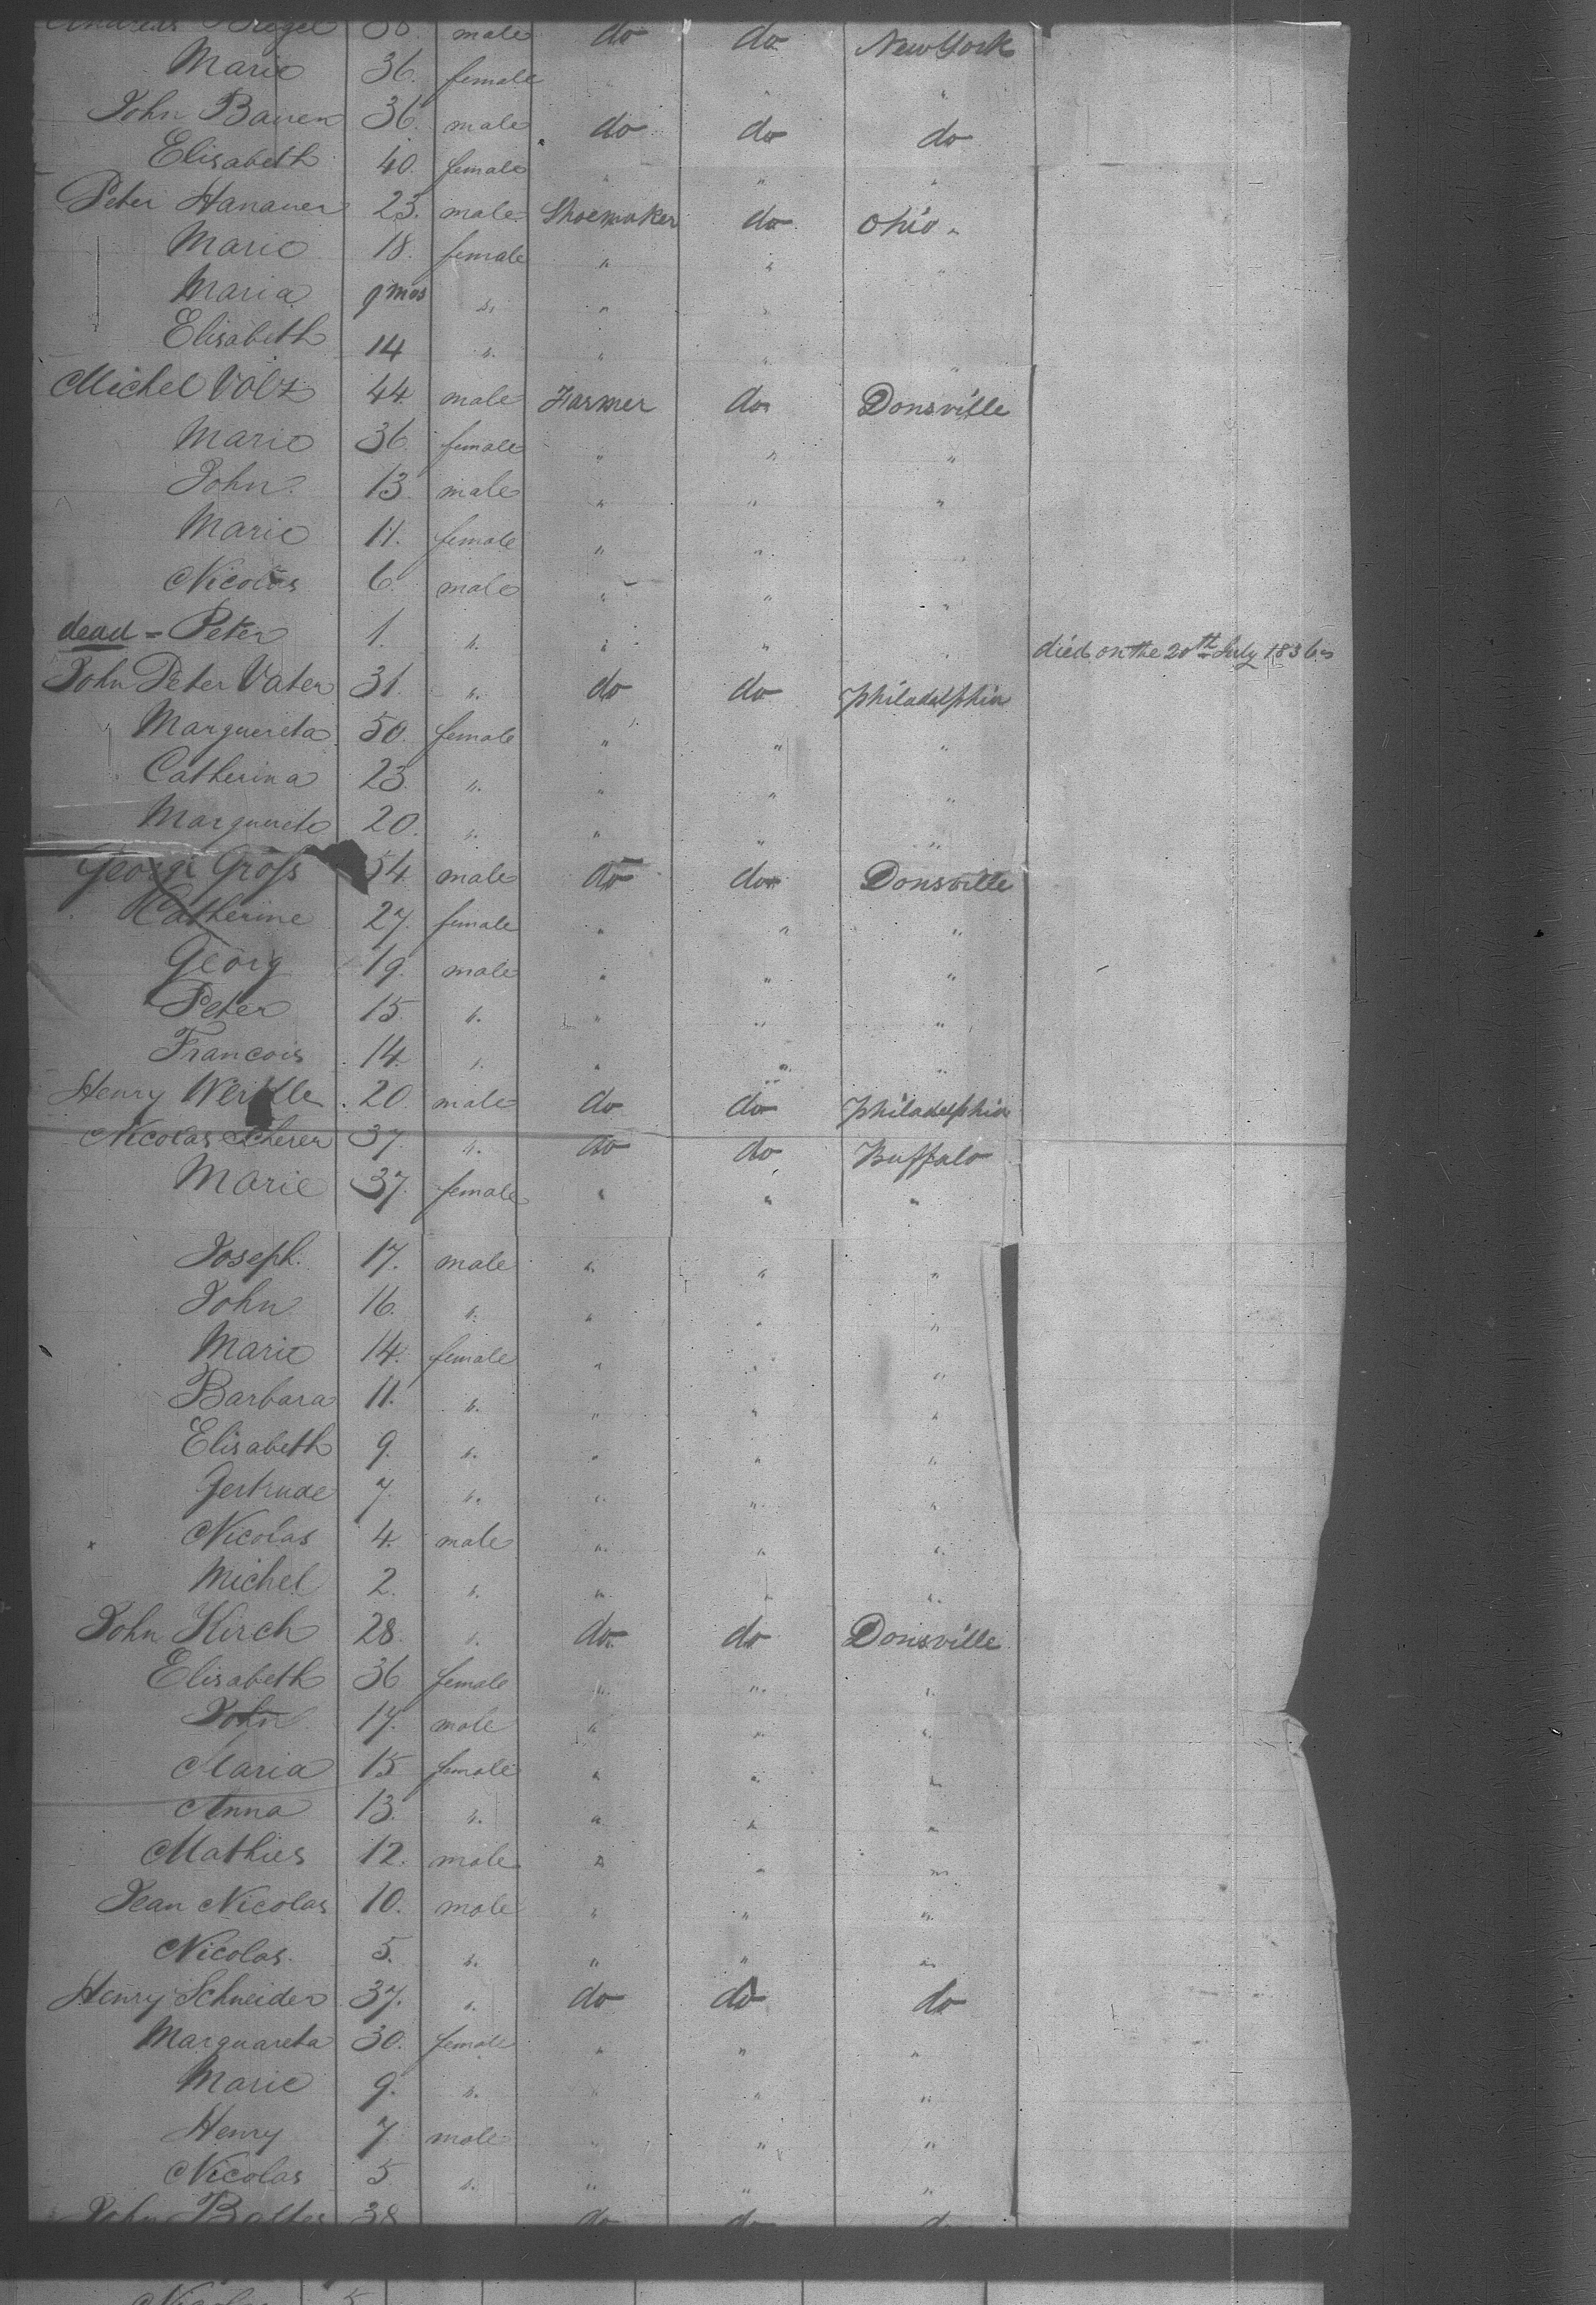 Andreas Siegel 38. male do do New York
Marie 36. female " " "
John Bauer 36. male do do do
Elisabeth 40. female " " "
Peter Hanauer 23. male Shoemaker do Ohio "
Marie 18. female " " "
Maria 9 mos " " "
Elisabeth 14 " " " "
Michel Volz 44 male Farmer do Donsville
Marie 36 female " " "
John 13 male " " "
Marie 11. female " "
Nicolas 6 male " " "
dead = Peter 1. " " " " died on the 20th July 1836
John Peter Vater 31. " do do Philadelphia
Marguereta 50. female " " "
Catherina 23 " " " "
Marguereta 20. " " " "
George Gross 54 male do do Donsville
Catherine 27. female " " "
Georg 19. male " " "
Peter 15. " " " "
Francois 14 " " " "
Henry Werkle 20. male do do Philadelphia
Nicolas Scherer 37. " do do Buffalo
Marie 37. female " " "
Joseph 17. male " " "
John 16. " " " "
Marie 14. female " " "
Barbara 11. " " " "
Elisabeth 9. " " " "
Gertrude 7. " " " "
Nicolas 4. male " " "
Michel 2. " " " "
John Kirch 28. " do do Donsville
Elisabeth 36 female " " "
John 17. male " " "
Maria 15 female " " "
Anna 13. " " " "
Mathies 12. male " " "
Jean Nicolas 10. male " " "
Nicolas 5. " " " "
Henry Schneider 37. " do do do
Marguareta 30. female " " "
Marie 9. " " " "
Henry 7 male " " "
Nicolas 5 " " " "
John Balter 38 do do do
Nicolas 5